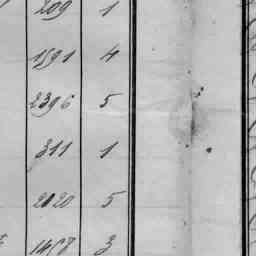 209 1
1591 4
2396 5
311 1
2020 5
1458 3